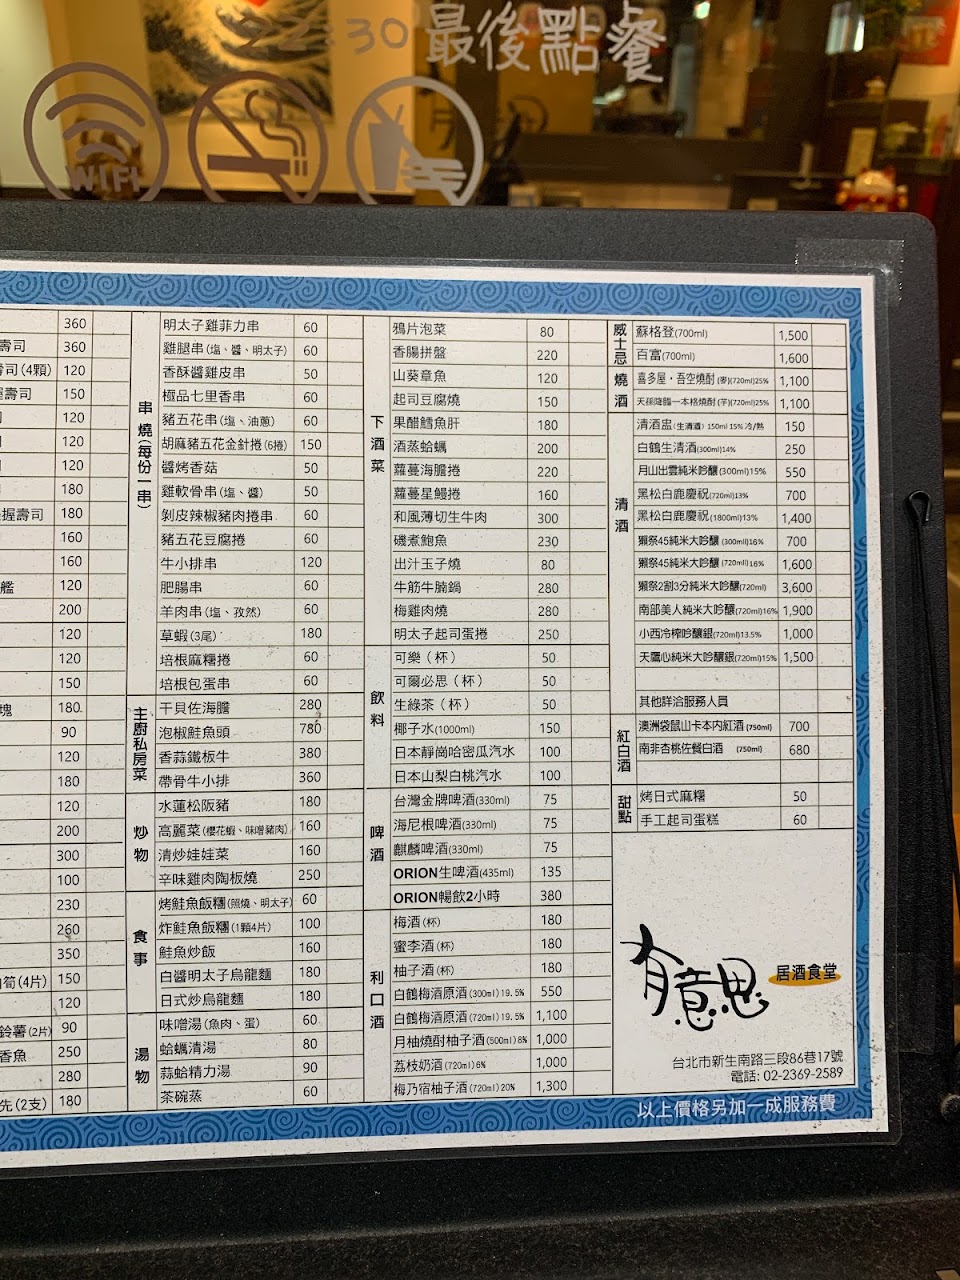 22:30 最後點餐
WIFI
360
壽司 360
壽司(4顆) 120
壽司 150
120
120
120
180
握壽司 180
160
160
艦 120
200
120
120
150
塊 180
90
120
180
120
200
300
100
230
260
350
筍(4片) 150
120
鈴薯(2片) 90
香魚 250
280
先(2支) 180
串燒(每份一串)
明太子雞菲力串 60
雞腿串(塩、醬、明太子) 60
香酥醬雞皮串 50
極品七里香串 60
豬五花串(塩、油蔥) 60
胡麻豬五花金針捲(6捲) 150
醬烤香菇 50
雞軟骨串(塩、醬) 50
剝皮辣椒豬肉捲串 60
豬五花豆腐捲 60
牛小排串 120
肥腸串 60
羊肉串(塩、孜然) 60
草蝦(3尾) 180
培根麻糬捲 60
培根包蛋串 60
主廚私房菜
干貝佐海膽 280
泡椒鮭魚頭 780
香蒜鐵板牛 380
帶骨牛小排 360
炒物
水蓮松阪豬 180
高麗菜(櫻花蝦、味噌豬肉) 160
清炒娃娃菜 160
辛味雞肉陶板燒 250
食事
烤鮭魚飯糰(照燒、明太子) 60
炸鮭魚飯糰(1顆4片) 100
鮭魚炒飯 160
白醬明太子烏龍麵 180
日式炒烏龍麵 180
湯物
味噌湯(魚肉、蛋) 60
蛤蠣清湯 80
蒜蛤精力湯 90
茶碗蒸 60
下酒菜
鴉片泡菜 80
香腸拼盤 220
山葵章魚 120
起司豆腐燒 150
果醋鱈魚肝 180
酒蒸蛤蠣 200
蘿蔓海膽捲 220
蘿蔓星鰻捲 160
和風薄切生牛肉 300
磯煮鮑魚 230
出汁玉子燒 80
牛筋牛腩鍋 280
梅雞肉燒 280
明太子起司蛋捲 250
飲料
可樂(杯) 50
可爾必思(杯) 50
生綠茶(杯) 50
椰子水(1000ml) 150
日本靜崗哈密瓜汽水 100
日本山梨白桃汽水 100
啤酒
台灣金牌啤酒(330ml) 75
海尼根啤酒(330ml) 75
麒麟啤酒(330ml) 75
ORION生啤酒(435ml) 135
ORION暢飲2小時 380
利口酒
梅酒(杯) 180
蜜李酒(杯) 180
柚子酒(杯) 180
白鶴梅酒原酒(300ml)19.5% 550
白鶴梅酒原酒(720ml)19.5% 1,100
月柚燒酎柚子酒(500ml)8% 1,000
荔枝奶酒(720ml)6% 1,000
梅乃宿柚子酒(720ml)20% 1,300
威士忌
蘇格登(700ml) 1,500
百富(700ml) 1,600
燒酒
喜多屋・吾空燒酎(麥)(720ml)25% 1,100
天孫降臨一本格燒酎(芋)(720ml)25% 1,100
清酒
清酒盅(生清酒)150ml 15% 冷/熱 150
白鶴生清酒(300ml)14% 250
月山出雲純米吟釀(300ml)15% 550
黑松白鹿慶祝(720ml)13% 700
黑松白鹿慶祝(1800ml)13% 1,400
獺祭45純米大吟釀(300ml)16% 700
獺祭45純米大吟釀(720ml)16% 1,600
獺祭2割3分純米大吟釀(720ml) 3,600
南部美人純米大吟釀(720ml)16% 1,900
小西冷榨吟釀銀(720ml)13.5% 1,000
天鷹心純米大吟釀銀(720ml)15% 1,500
其他詳洽服務人員
紅白酒
澳洲袋鼠山卡本內紅酒(750ml) 700
南非杏桃佐餐白酒(750ml) 680
甜點
烤日式麻糬 50
手工起司蛋糕 60
有意思
居酒食堂
台北市新生南路三段86巷17號
電話: 02-2369-2589
以上價格另加一成服務費